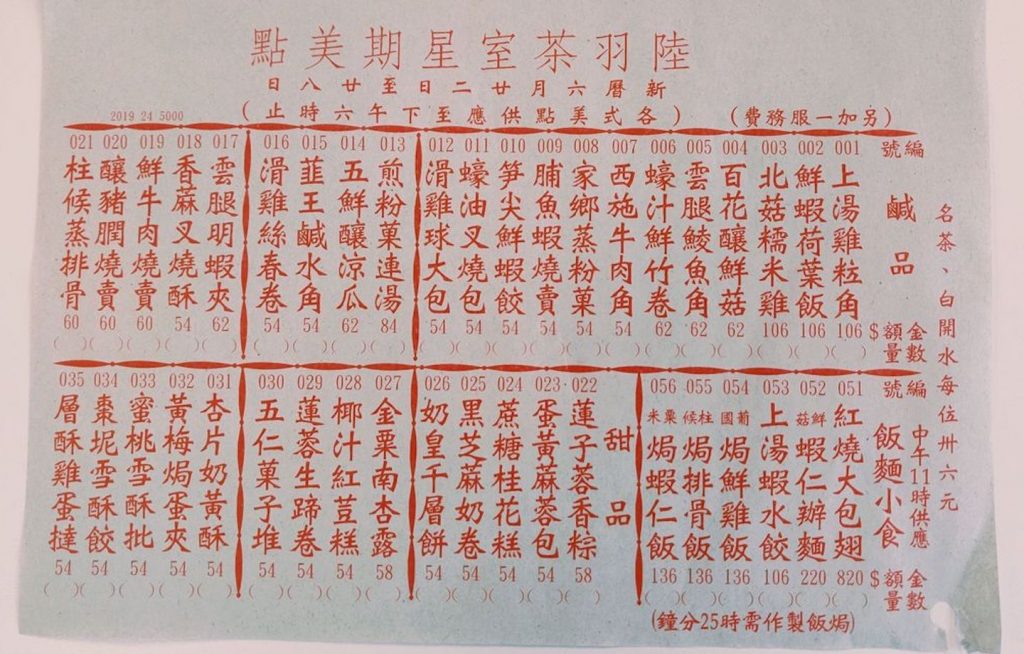 陸羽茶室星期美點
新曆六月廿二日至廿八日
(各式美點供應至下午六時止)
(另加一服務費)
2019 24 5000
名茶、白開水每位卅六元
編號
鹹品
金額$
數量
001 上湯雞粒角 106
002 鮮蝦荷葉飯 106
003 北菇糯米雞 106
004 百花釀鮮菇 62
005 雲腿鯪魚角 62
006 蠔汁鮮竹卷 62
007 西施牛肉角 54
008 家鄉蒸粉菓 54
009 脯魚蝦燒賣 54
010 笋尖鮮蝦餃 54
011 蠔油叉燒包 54
012 滑雞球大包 54
013 煎粉菓連湯 84
014 五鮮釀涼瓜 62
015 韮王鹹水角 54
016 滑雞絲春卷 54
017 雲腿明蝦夾 62
018 香蔴叉燒酥 54
019 鮮牛肉燒賣 60
020 釀豬膶燒賣 60
021 柱候蒸排骨 60
編號
飯麵小食
中午11時供應
金額$
數量
051 紅燒大包翅 820
052 鮮菇蝦仁辦麵 220
053 上湯蝦水餃 106
054 葡國焗鮮雞飯 136
055 柱候焗排骨飯 136
056 粟米焗蝦仁飯 136
(焗飯製作需時25分鐘)
甜品
022 蓮子蓉香粽 58
023 蛋黃蔴蓉包 54
024 蔗糖桂花糕 54
025 黑芝蔴奶卷 54
026 奶皇千層餅 54
027 金栗南杏露 58
028 椰汁紅荳糕 54
029 蓮蓉生蹄卷 54
030 五仁菓子堆 54
031 杏片奶黃酥 54
032 黃梅焗蛋夾 54
033 蜜桃雪酥批 54
034 棗坭雪酥餃 54
035 層酥雞蛋撻 54